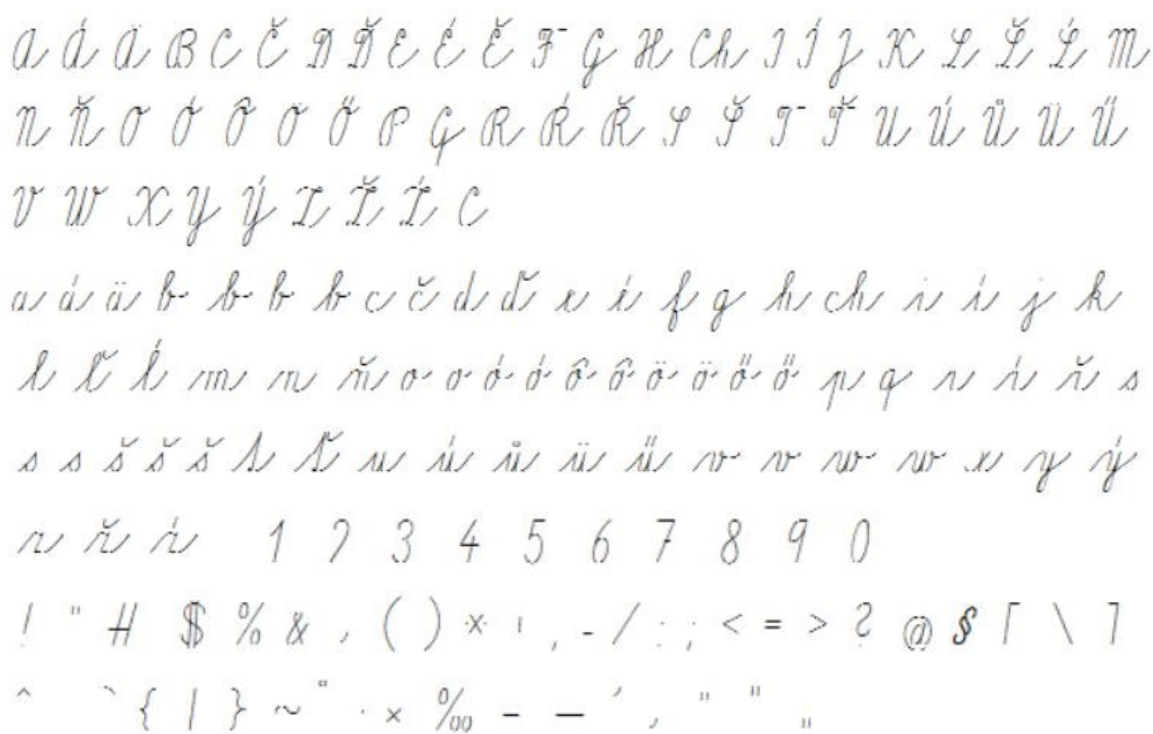 A Á Ä B C Č D Ď E É Ě F G H Ch I Í J K L Ľ Ĺ M
N Ň O Ó Ô Ö Ő P Q R Ŕ Ř S Š T Ť U Ú Ů Ü Ű
V W X Y Ý Z Ž Ź C
a á ä b b b b c č d ď e é f g h ch i í j k
l ľ ĺ m n ň o o ó ó ô ô ö ö ő ő p q r ŕ ř s
s s š š š t ť u ú ů ü ű v v w w x y ý
z ž ź 1 2 3 4 5 6 7 8 9 0
! " # $ % & , ( ) × , - / : ; < = > ? @ § [ \ ]
^ ` { | } ~ ° · × ‰ – — ´ , " " „